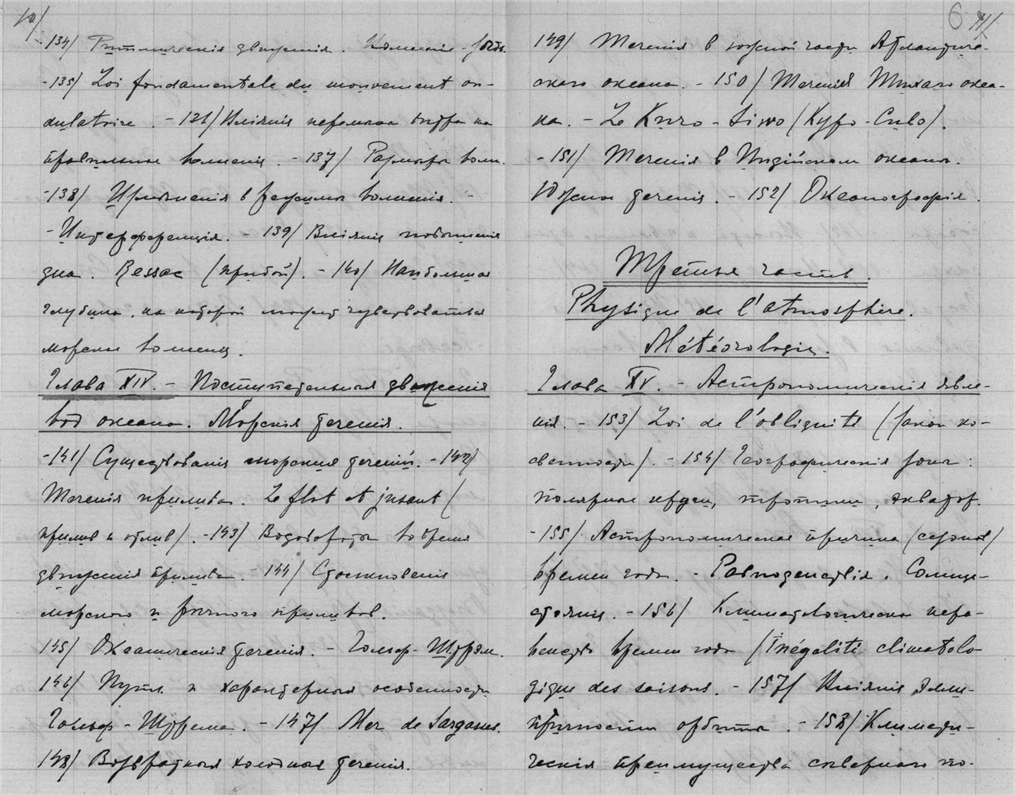 10/
134/ Ритмическія движенія. Волненіе.
-135/ Loi fondamentale du mouvement on-
dulatoire. - 136/ Вліяніе перемены ветра на
правильное волненіе. - 137/ Размеры волн.
-138/ Измененія в режиме волненія. -
- Интерференція. 139/ Вліяніе повышенія
дна. Ressac (прибой). - 140/ Наибольшая
глубина, на которой может чувствоваться
морское волненіе.
Глава XIV. - Поступательныя движенія
вод океана. Морскія теченія.
-141/ Существованіе морских теченій. - 142/
Теченія прилива. Le flot et jusant (
прилив и отлив). - 143/ Водовороты во время
движенія прилива. 144/ Столкновеніе
морского и речного приливов.
145/ Океаническія теченія. - Гольф-Штрем.
146/ Путь и характерныя особенности
Гольф-Штрема. - 147/ Mer de Sargasses.
148/ Возвратныя холодныя теченія.
6 11/
149/ Теченія в южной части Атланттиче-
скаго океана. - 150/ Теченія Тихаго океа-
на. - Le Kuro-Siwo (Куро-Сиво).
-151/ Теченія в Индійском океане.
Южныя теченія. - 152/ Океанографія.
Третья часть
Physique de l'atmosphère.
Météorologie.
Глава XV. - Астрономическія явле-
нія. - 153/ Loi de l'obliquité (закон ко-
свенности) - 154/ Географическія зоны:
полярные круги, тропики, экватор.
-155/ Астрономическая причина (сезонов)
времен года. Равноденствія. Солнце-
стоянія. - 156/ Климатологическое нера-
венство времен года (Inégalité climatolo-
gique des saisons. - 157/ Вліяніе эллип-
тичности орбиты. - 158/ Климати-
ческія преимущества севернаго по-